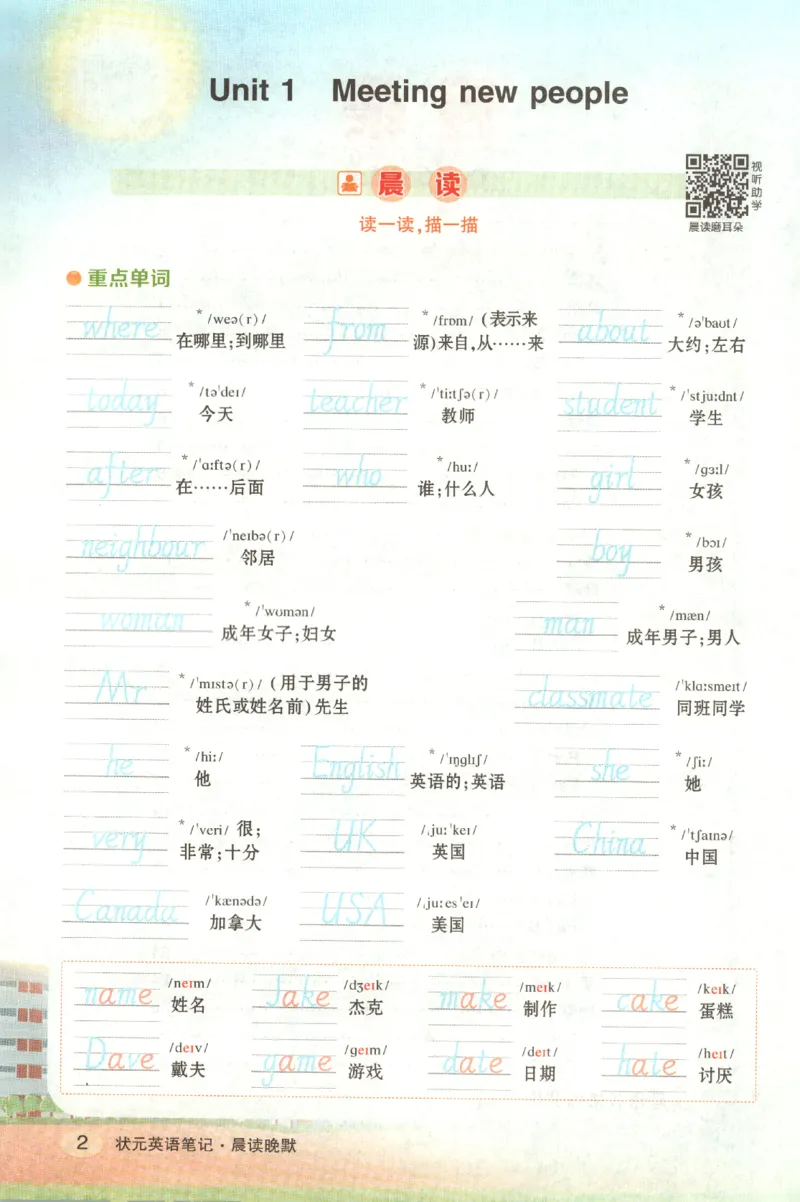 Unit 1 Meeting new people
晨 读
视听助学
读一读,描一描
晨读磨耳朵
重点单词
where */weə(r)/ 在哪里;到哪里
from */frɒm/ (表示来源)来自,从……来
about */ə'baʊt/ 大约;左右
today */tə'deɪ/ 今天
teacher */'tiːtʃə(r)/ 教师
student */'stjuːdnt/ 学生
after */'ɑːftə(r)/ 在……后面
who */huː/ 谁;什么人
girl */ɡɜːl/ 女孩
neighbour /'neɪbə(r)/ 邻居
boy */bɔɪ/ 男孩
woman */'wʊmən/ 成年女子;妇女
man */mæn/ 成年男子;男人
Mr */'mɪstə(r)/ (用于男子的姓氏或姓名前)先生
classmate /'klɑːsmeɪt/ 同班同学
he */hiː/ 他
English */'ɪŋɡlɪʃ/ 英语的;英语
she */ʃiː/ 她
very */'veri/ 很;非常;十分
UK /ˌjuː 'keɪ/ 英国
China */'tʃaɪnə/ 中国
Canada /'kænədə/ 加拿大
USA /ˌjuː es 'eɪ/ 美国
name /neɪm/ 姓名
Jake /dʒeɪk/ 杰克
make /meɪk/ 制作
cake /keɪk/ 蛋糕
Dave /deɪv/ 戴夫
game /ɡeɪm/ 游戏
date /deɪt/ 日期
hate /heɪt/ 讨厌
2 状元英语笔记·晨读晚默